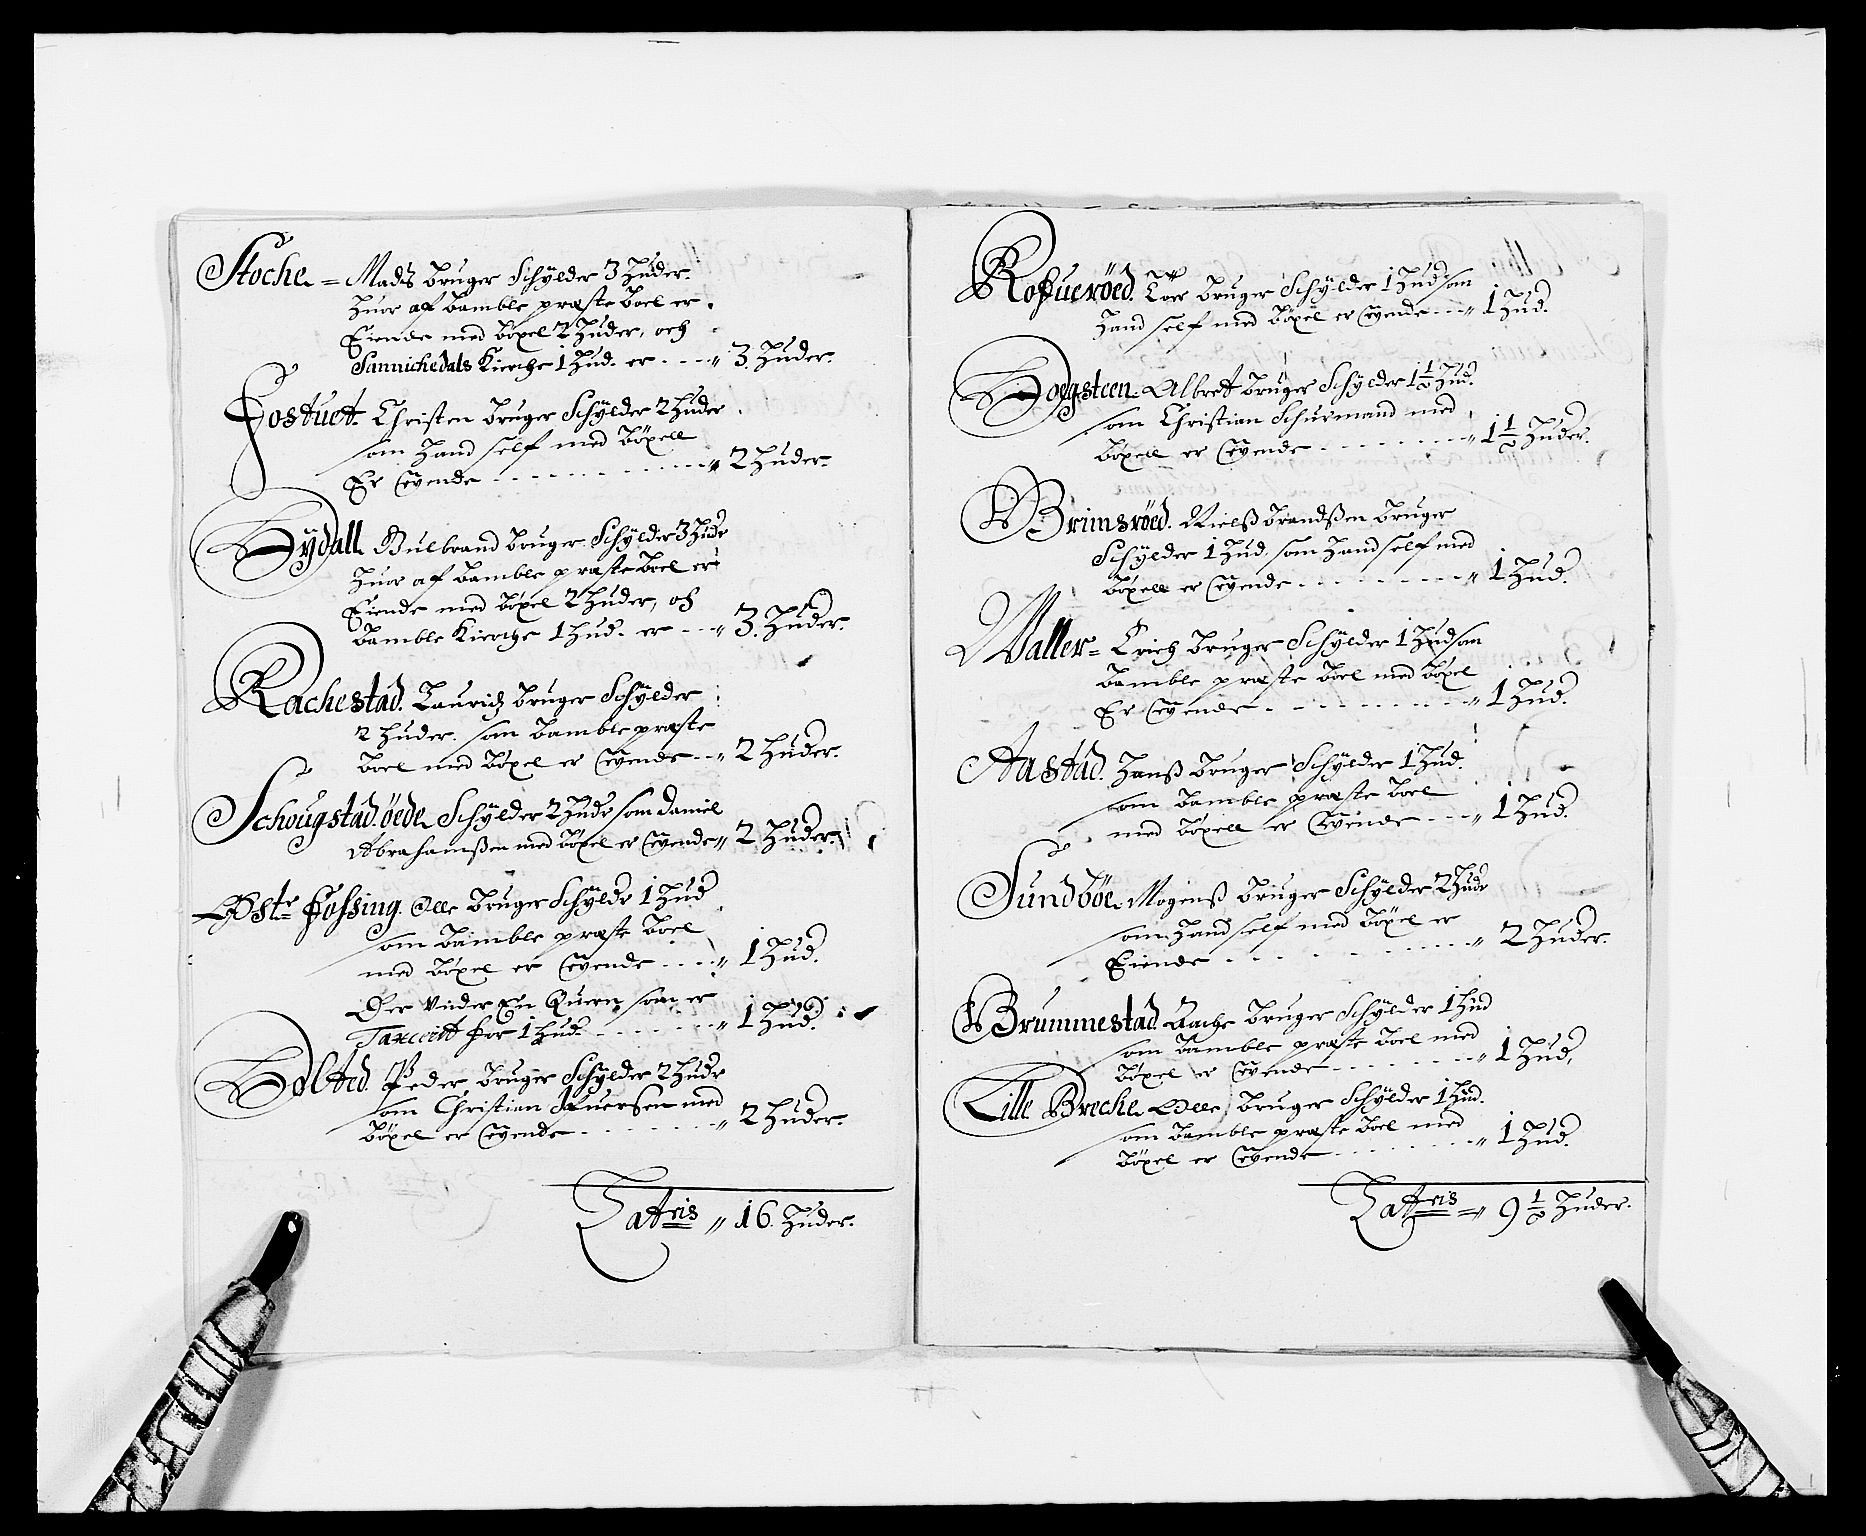 Stoche = Madtz bruger Schÿlder 3 Huder.
Huor af Bamble præste boel er
Eiende med böxel 2 Huder, och
Sannichedals Kierche 1 Hud. er - - - „ 3. Huder.
Fostuet. Christen bruger Schÿlder 2 Huder
som Hand self med böxell
Er Eÿende - - - - - - - „ 2 Huder.
Dÿdall Gulbrand bruger Schÿlder 3 Hudr
Huor af Bamble præste boel er
Eiende med böxel 2 Huder, och
Bamble Kierche 1 Hud. er - - „ 3. Huder.
Rachestad. Lauritz bruger Schÿlder
2 Huder. som Bamble præste
boel med böxel er Eÿende - - „ 2 Huder.
Schougstad öede Schÿlder 2 Hudr som Daniel
Abrahamßen med böxel er Eÿende „ 2 Huder.
Østr Fossing. Olle bruger Schÿldr 1 Hud
som Bamble præste boel
med böxel er Eÿende - - - „ 1 Hud.
Der Under En Quern som er
Taxerit for 1 Hud. - - - - - „ 1 Hud.
Holted. Peder bruger Schÿlder 2 Hudr
som Christian Ifuersen med
böxel er Eÿende - - - - - - „ 2 Huder.
Latris „ 16. Huder.
Rosueröed. Töer bruger Schÿlder 1 Hud som
Hand self med böxel er Eÿende - - „ 1 Hud.
Dögsteen. Albret bruger Schÿlder 1 1/2 Hud.
som Christian Schurmand med
böxell er Eÿende - - - - - - - „ 1 1/2 Huder.
Brimsröed. Nielß Brandßen bruger
Schÿlder 1 Hud. som Hand self med
böxell er Eÿende - - - - - - - „ 1 Hud.
Waller = Erich bruger Schÿlder 1 Hud som
Bamble præste boel med böxel
Er Eÿende - - - - - - - - - „ 1 Hud.
Aastad. Hanß bruger Schÿlder 1 Hud.
som Bamble præste boel
med böxell er Eÿende - - - „ 1 Hud.
Sundböe. Mogenß bruger Schÿlder 2 Hudr
som Hand self med böxel er
Eiende - - - - - - - - - „ 2 Huder.
Brummestad Aache bruger Schÿlder 1 Hud
som Bamble præste boel med
böxel er Eÿende - - - - - - „ 1 Hud.
Lille Breche. Olle bruger Schÿlder 1 Hud.
som Bamble præste boel med
böxel er Eÿende - - - - - - „ 1 Hud.
Latris = „ 9 1/2 Huder.